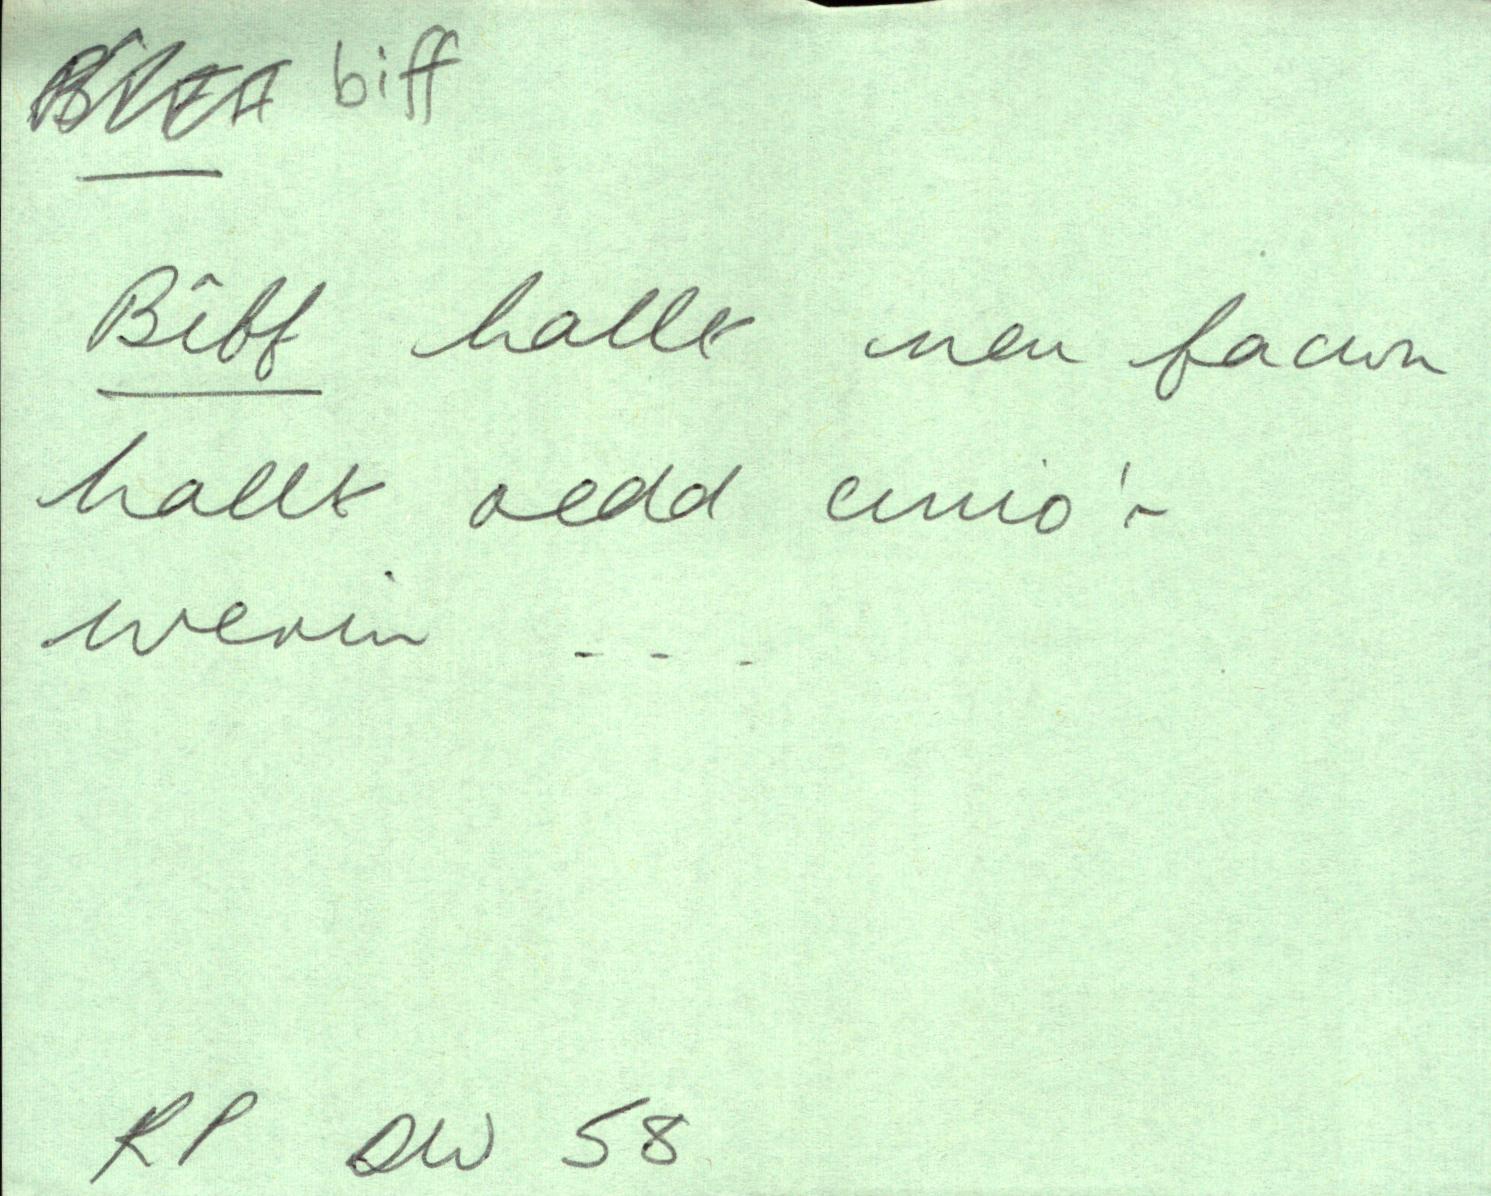 biff
Bîff hallt neu facwn
hallt oedd cinio'r
werin ...
RP DW 58